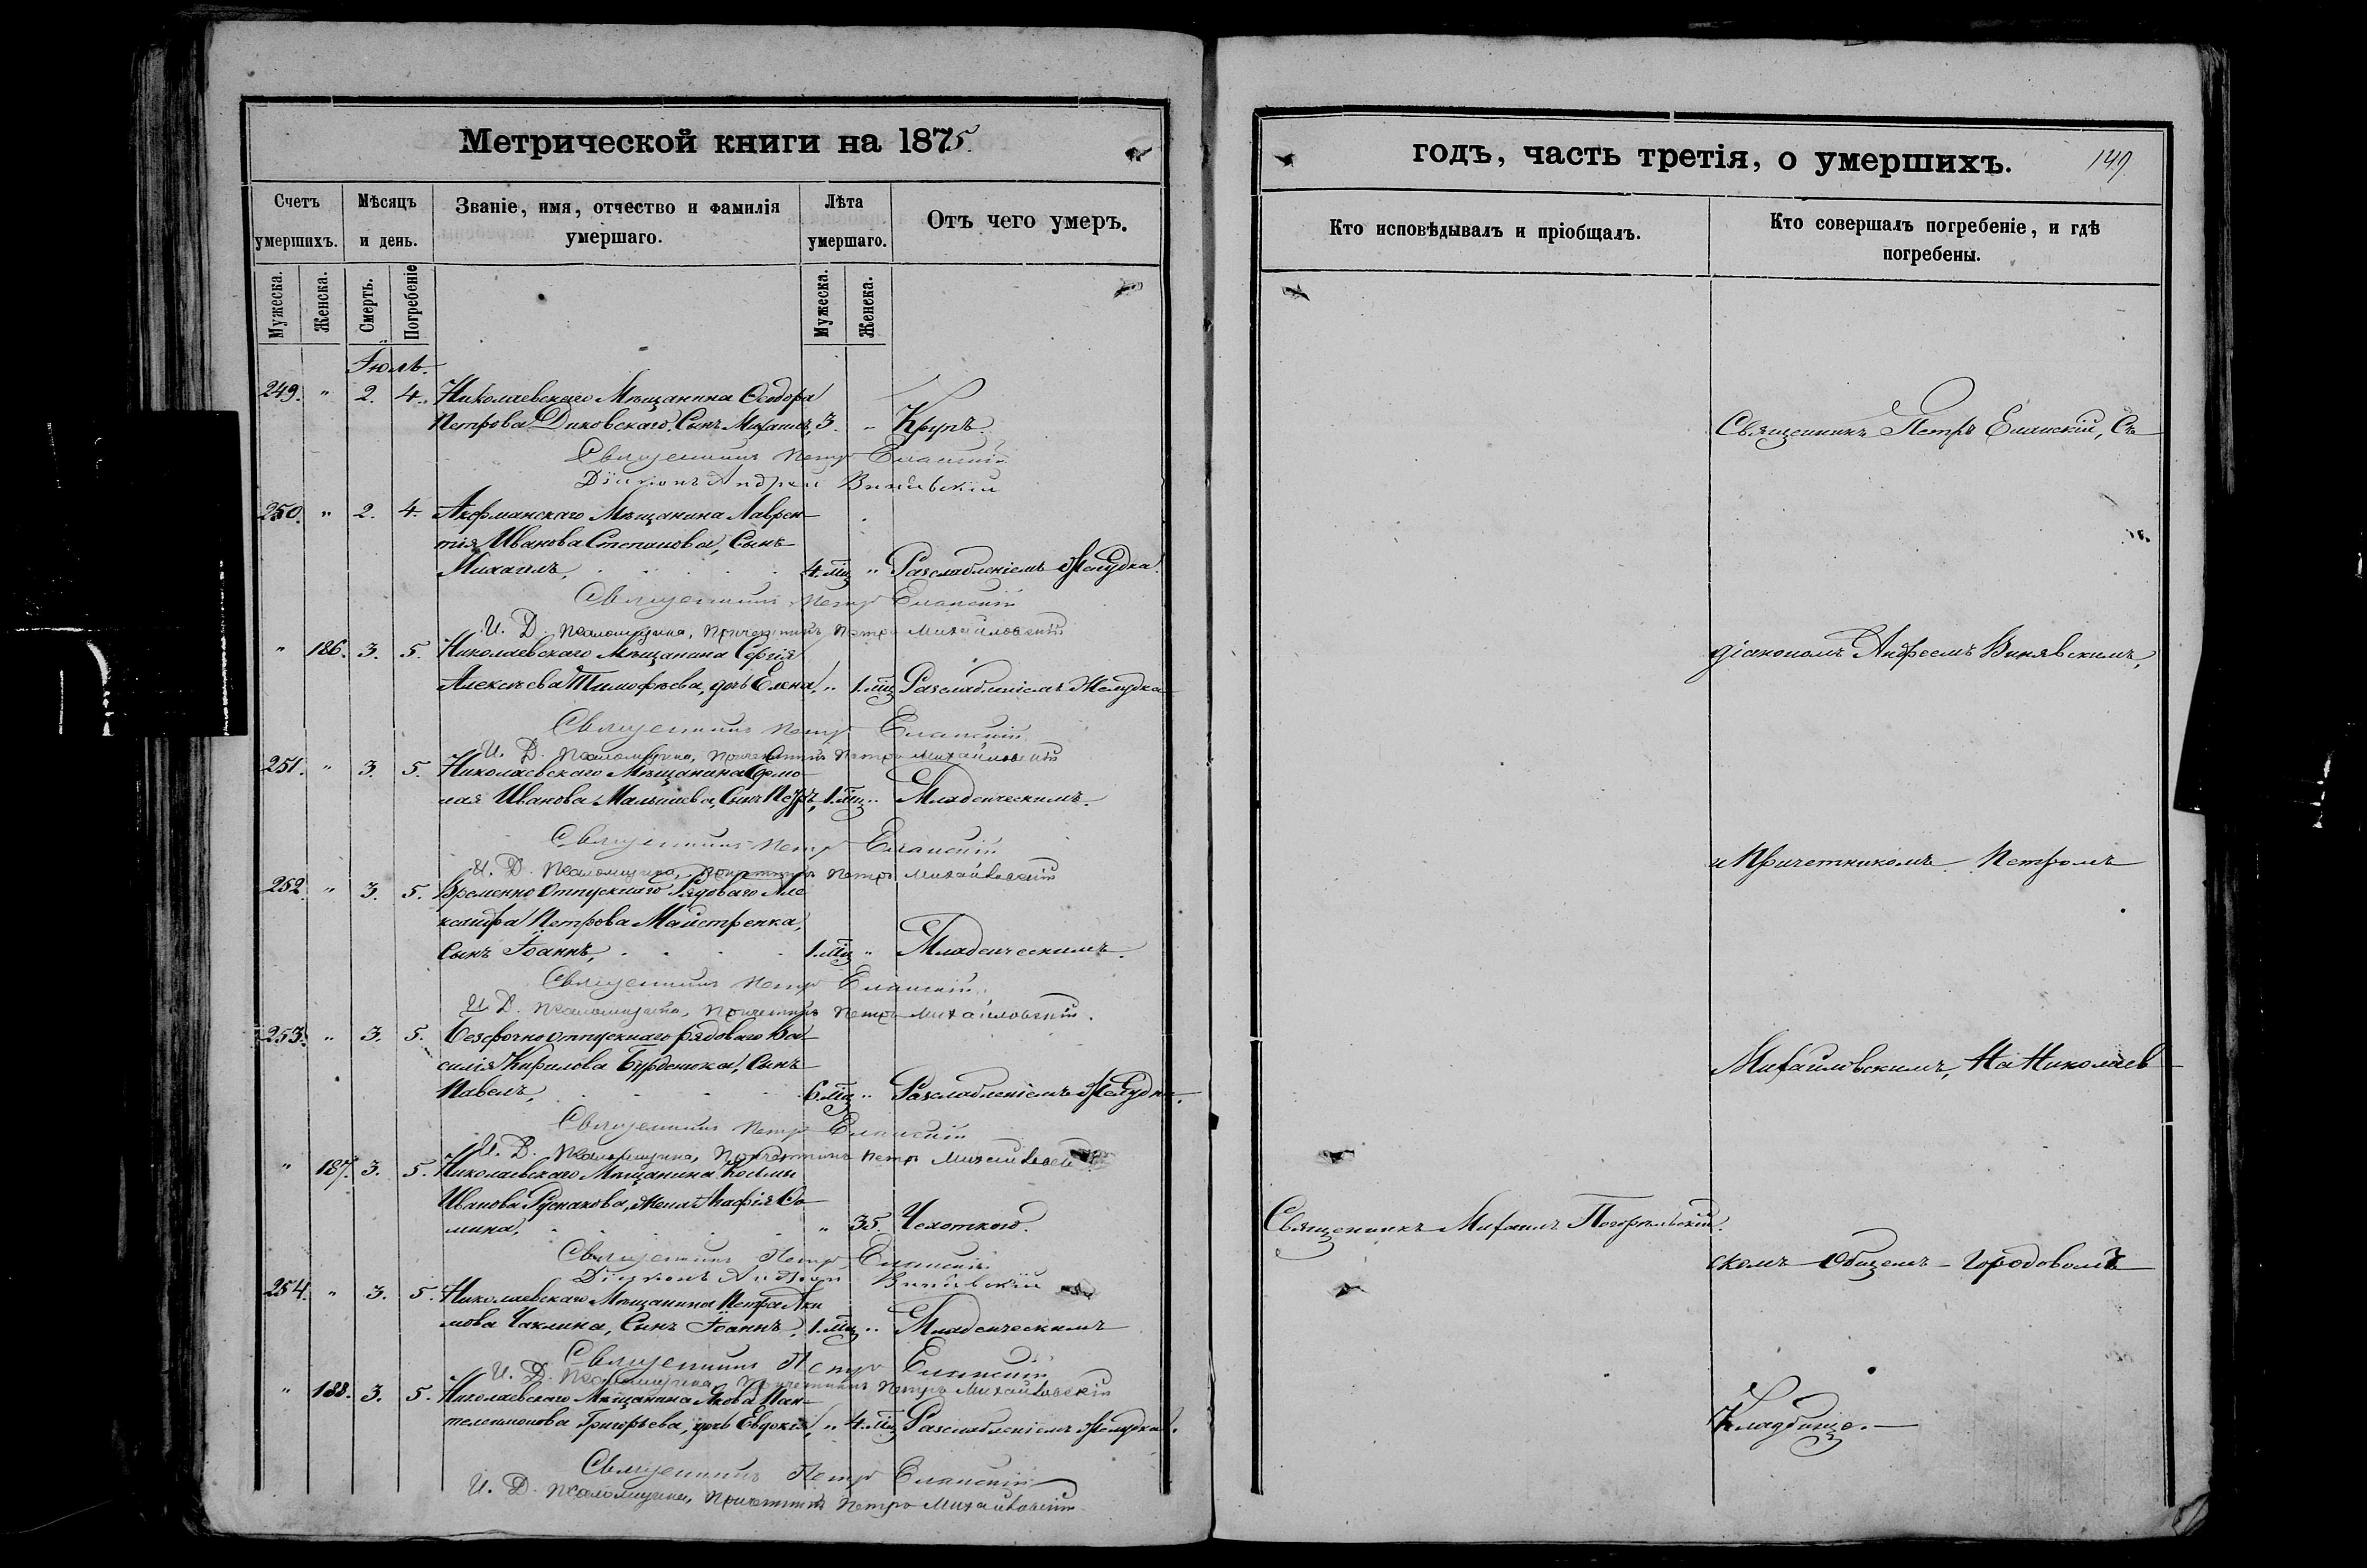 Метрической книги на 1875
Счетъ умершихъ.
Мѣсяцъ и день.
Званіе, имя, отчество и фамилія умершаго.
Лѣта умершаго.
Отъ чего умеръ.
Мужеска.
Женска.
Смерть.
Погребеніе
Мужеска.
Женска.
Іюль.
249. " 2. 4. Николаевскаго Мѣщанина Ѳеодора
Петрова Диковскаго, Сынъ Михаилъ, 3. " Крупъ.
Священникъ Петръ Еланскій
Діаконъ Андрей Винявскій
250. " 2. 4. Акерманскаго Мѣщанина Лаврен-
тія Иванова Степанова, Сынъ
Михаилъ, 4. мц " Разслабленіемъ Желудка.
Священникъ Петръ Еланскій
И. Д. Псаломщика, Причетникъ Петръ Михайловскій
" 186. 3. 5. Николаевскаго Мѣщанина Сергія
Алексѣева Тимофѣева, дочь Елена, " 1. мц Разслабленіемъ Желудка
Священникъ Петръ Еланскій
И. Д. Псаломщика, Причетникъ Петръ Михайловскій
251. " 3. 5. Николаевскаго Мѣщанина Ермо-
лая Иванова Малышева, Сынъ Петръ, 1. мц " Младенческимъ.
Священникъ Петръ Еланскій
И. Д. Псаломщика, Причетникъ Петръ Михайловскій
252. " 3. 5. Временно Отпускнаго Рядоваго Але
ксандра Петрова Майстренка,
Сынъ Іоаннъ, 1. мц " Младенческимъ.
Священникъ Петръ Еланскій
И. Д. Псаломщика, Причетникъ Петръ Михайловскій.
253. " 3. 5. Безсрочно отпускнаго рядоваго Ва-
силія Кирилова Бурденюка, Сынъ
Павелъ, 6. мц " Разслабленіемъ Желудка.
Священникъ Петръ Еланскій
И. Д. Псаломщика, Причетникъ Петръ Михайловскій
" 187. 3. 5. Николаевскаго Мѣщанина Космы
Иванова Руснакова, Жена Агафія Ѳо
мина, " 35. Чахоткою.
Священникъ Петръ Еланскій
Діаконъ Андрей Винявскій
254. " 3. 5. Николаевскаго Мѣщанина Петра Аки
мова Чаклина, Сынъ Іоаннъ, 1. мц " Младенческимъ
Священникъ Петръ Еланскій
И. Д. Псаломщика, Причетникъ Петръ Михайловскій
" 188. 3. 5. Николаевскаго Мѣщанина Якова Пан-
телеимонова Григорьева, дочь Евдокія, " 4. мц Разслабленіемъ Желудка.
Священникъ Петръ Еланскій
И. Д. Псаломщика, Причетникъ Петръ Михайловскій
годъ, часть третія, о умершихъ.
149
Кто исповѣдывалъ и пріобщалъ.
Кто совершалъ погребеніе, и гдѣ погребены.
Священникъ Петръ Еланскій, Съ
діакономъ Андреемъ Винявскимъ,
и Причетникомъ Петромъ
Михайловскимъ, На Николаев
Священникъ Михаилъ Погорѣльскій.
скомъ Общемъ Городовомъ
Кладбище.